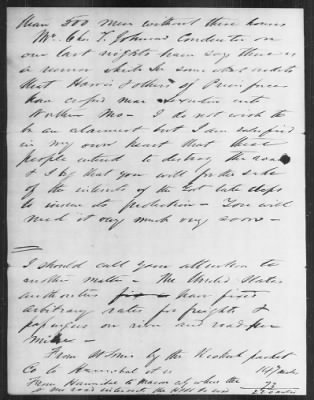 than 500 men without their homes
Mr. Geo. T. Johnson Conductor on
our last nights train say there is
a rumor which he some what credits
that Harris & others of Price forces
have crossed near Lexington into
Northern Mo - I do not wish to
be an alarmist but I am satisfied
in my own heart that these
people intend to destroy the road
& I beg that you will for the sake
of the interests of the Govt take steps
to insure its protection - You will
need it very much very soon -
I should call your attention to
another matter - The United States
authorities have fixed
arbitrary rates for freights &
passengers on river and road per
mile -
From St Louis by the Keokuk packet
Co to Hannibal it is 147 miles
From Hannibal to Macon City where the
road intersects the 73